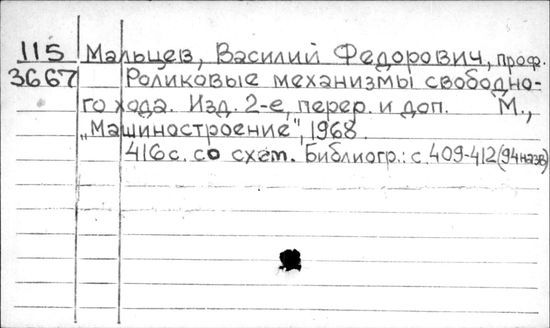 115 Мальцев, Василий Федорович, проф.
3667 Роликовые механизмы свободно-
го хода. Изд. 2-е, перер. и доп. М.,
„Машиностроение", 1968.
416 с. со схем. Библиогр.: с. 409-412 (94 назв)